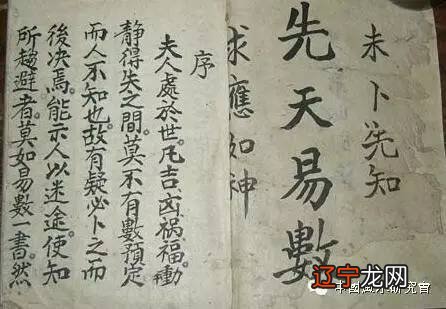 未卜先知
先天易數
求應如神
序
夫人處於世。凡吉凶祸福動
靜得失之間。莫不有數預定
而人不知也。故有疑必卜之而
後决焉。能示人以迷途。使知
所趨避者。莫如易數一書。然
辽宁龙网